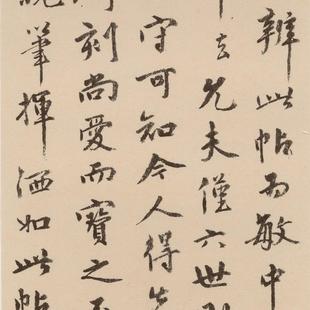 辨此帖而敏中
去兄未僅六世
守可知今人得
刻尚愛而寶之
筆揮洒如此帖